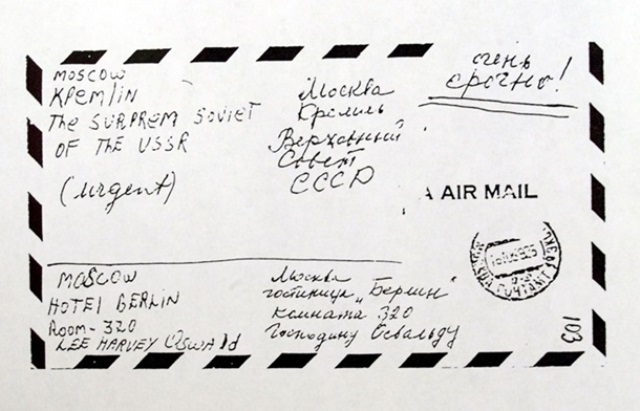 MOSCOW
KРЕМLIN
The SURPREM SOVIET
OF The USSR
(urgent)
Москва
Кремль
Верховный
Совет
СССР
очень
срочно!
AIR MAIL
MOSCOW
HOTEl BERLIN
Room- 320
LEE HARVEY OSWAld
Москва
гостиница „Берлин"
комната 320
Господину Освальду
103